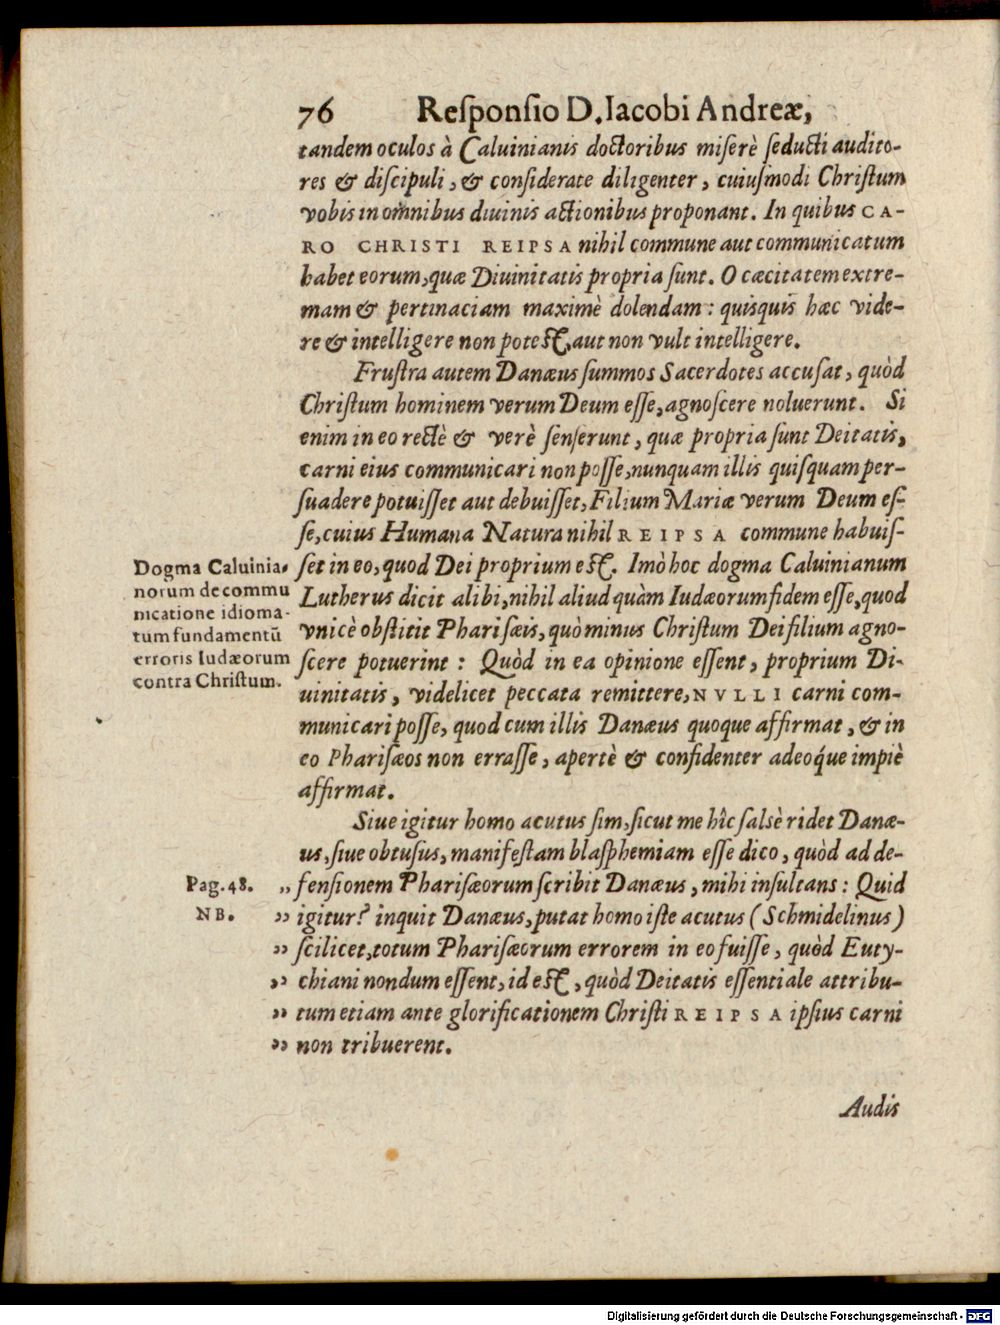 76 Reſponſio D. Iacobi Andreæ,
tandem oculos à Caluinianis doctoribus miſerè ſeducti audito-
res & diſcipuli, & conſiderate diligenter, cuiuſmodi Chriſtum
vobis in omnibus diuinis actionibus proponant. In quibus CA-
RO CHRISTI REIPSA nihil commune aut communicatum
habet eorum, quæ Diuinitatis propria ſunt. O cæcitatem extre-
mam & pertinaciam maximè dolendam: quisquis hæc vide-
re & intelligere non poteſt, aut non vult intelligere.
Fruſtra autem Danæus ſummos Sacerdotes accuſat, quòd
Chriſtum hominem verum Deum eſſe, agnoſcere noluerunt. Si
enim in eo rectè & verè ſenſerunt, quæ propria ſunt Deitatis,
carni eius communicari non poſſe, nunquam illis quiſquam per-
ſuadere potuiſſet aut debuiſſet, Filium Mariæ verum Deum eſ-
ſe, cuius Humana Natura nihil REIPSA commune habuiſ-
ſet in eo, quod Dei proprium eſt. Imò hoc dogma Caluinianum
Lutherus dicit alibi, nihil aliud quàm Iudæorum fidem eſſe, quod
vnicè obſtitit Phariſæis, quò minus Chriſtum Dei filium agno-
ſcere potuerint: Quòd in ea opinione eſſent, proprium Di-
uinitatis, videlicet peccata remittere, NVLLI carni com-
municari poſſe, quod cum illis Danæus quoque affirmat, & in
eo Phariſæos non erraſſe, apertè & confidenter adeoq́ue impiè
affirmat.
Dogma Caluinia-
norum de commu
nicatione idioma-
tum fundamentū
erroris Iudæorum
contra Chriſtum.
Siue igitur homo acutus ſim, ſicut me hîc ſalsè ridet Danæ-
us, ſiue obtuſus, manifeſtam blaſphemiam eſſe dico, quòd ad de-
Pag. 48. „ fenſionem Phariſæorum ſcribit Danæus, mihi inſultans: Quid
NB. „ igitur? inquit Danæus, putat homo iſte acutus (Schmidelinus)
„ ſcilicet, totum Phariſæorum errorem in eo fuiſſe, quòd Euty-
„ chiani nondum eſſent, id eſt, quòd Deitatis eſſentiale attribu-
„ tum etiam ante glorificationem Chriſti REIPSA ipſius carni
„ non tribuerent.
Audis
Digitalisierung gefördert durch die Deutsche Forschungsgemeinschaft - DFG